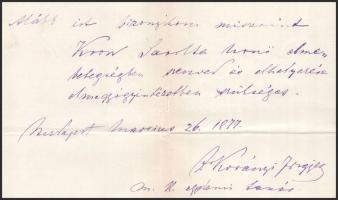 Alább írt bizonyítom miszerint
Sarolta urnő elme
betegségben szenved és elhelyezése
elmegyógyintézetben szükséges.
Budapest Marczius 26. 1877.
Dr Korányi Frigyes
m. k. egyetemi tanár